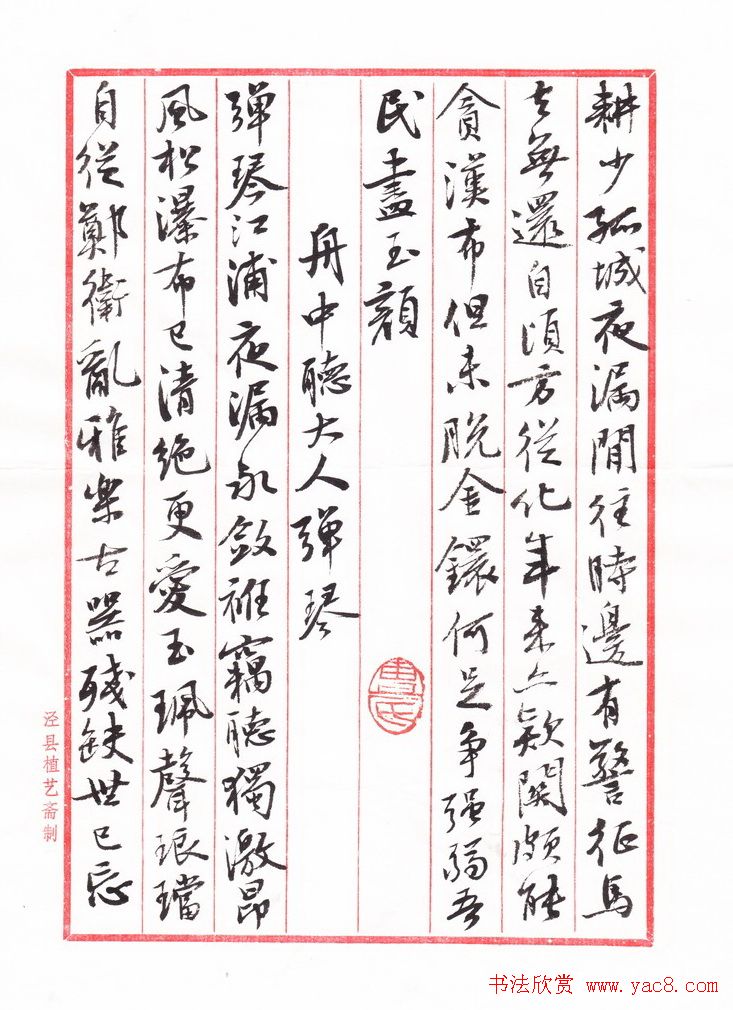 耕少孤城夜漏閒往時邊有警征馬
去無還自頃方從化年来亦欵關頗能
貪漢布但未脱金鐶何足争强弱吾
民盡玉顔
舟中聽大人彈琴
彈琴江浦夜漏永斂衽竊聽獨激昂
風松瀑布已清絶更愛玉珮聲琅璫
自從鄭衛亂雅樂古器殘缺世已忘
泾县植艺斋制
书法欣赏 www.yac8.com